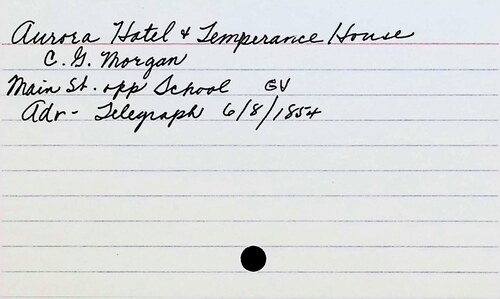 Aurora Hotel & Temperance House
C. G. Morgan
Main St. opp School GV
Adv - Telegraph 6/8/1854